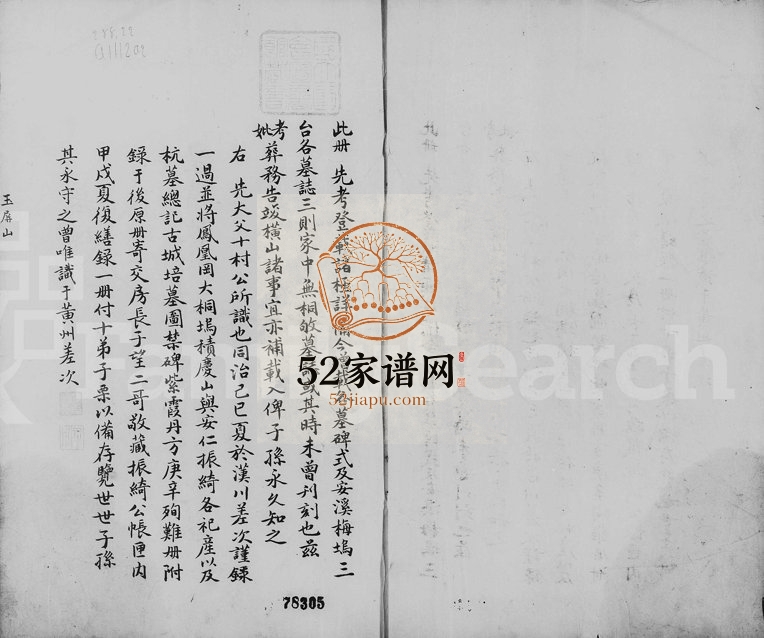 此册 先考登載諸極詳 今曾 墓碑式及安溪梅塢三
台各墓誌三則家中無桐敂墓 或其時未曾刋刻也兹
考
妣葬務告竣横山諸事宜亦補載入俾子孫永久知之
右 先大父十村公所識也同治己巳夏於漢川差次謹錄
一過並將鳳凰岡大桐塢積慶山與安仁振綺各祀産以及
杭墓總記古城培墓圖禁碑紫霞丹方庚辛殉難册附
錄于後原册寄交房長子望二哥敬藏振綺公帳匣内
甲戌夏復繕錄一册付十弟子栗以備存覽世世子孫
其永守之曾唯識于黄州差次
玉屏山
52家谱网
52jiapu.com
FamilySearch
78305